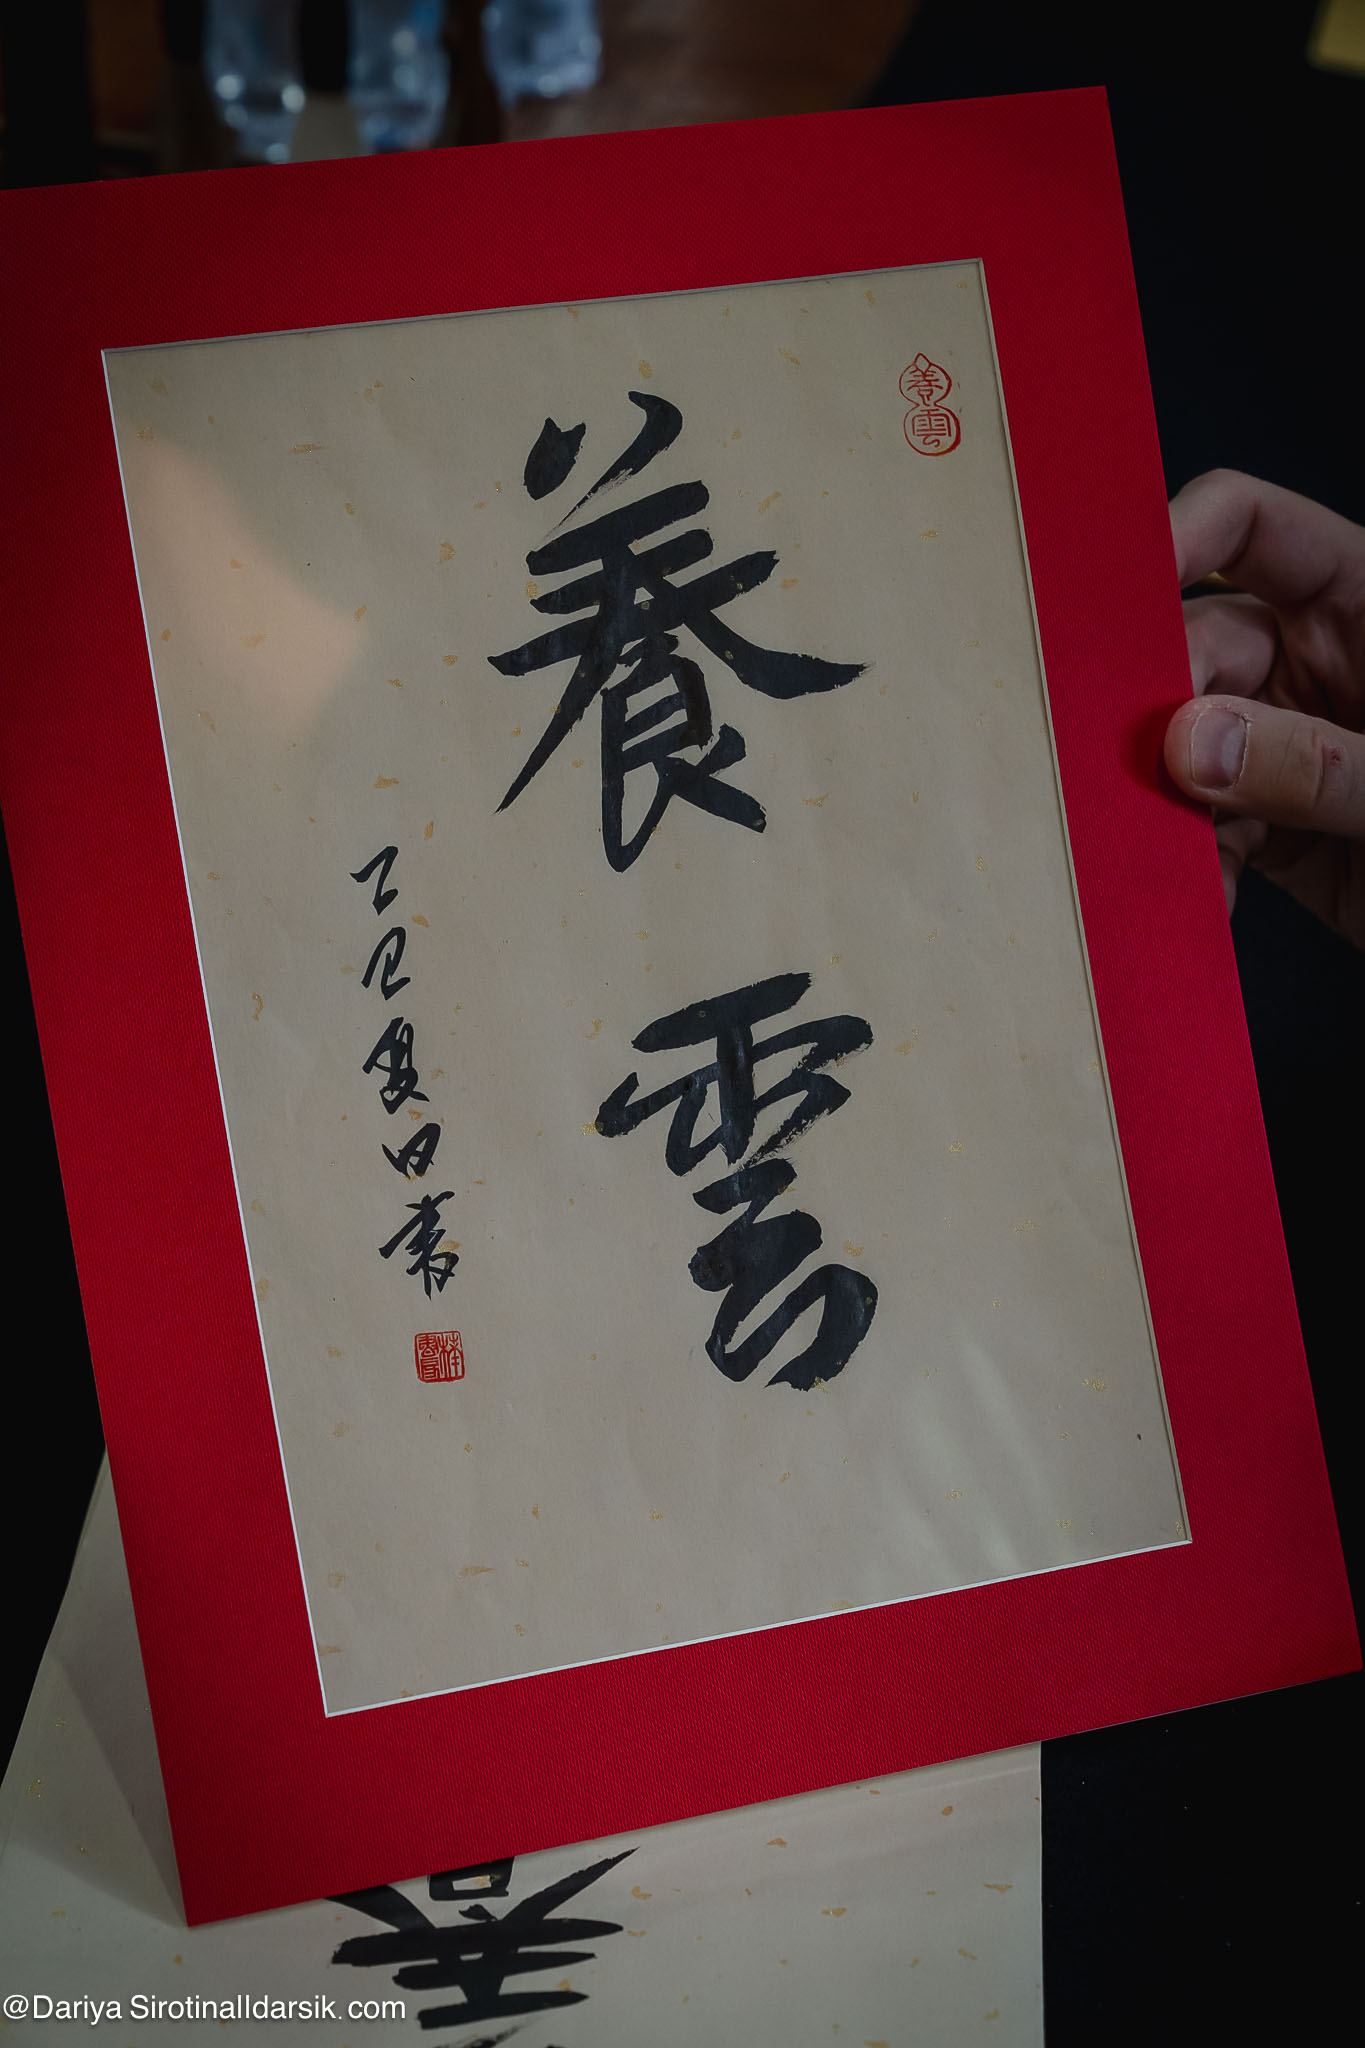 養雲
養雲
乙巳夏日書
@Dariya Sirotinalldarsik.com